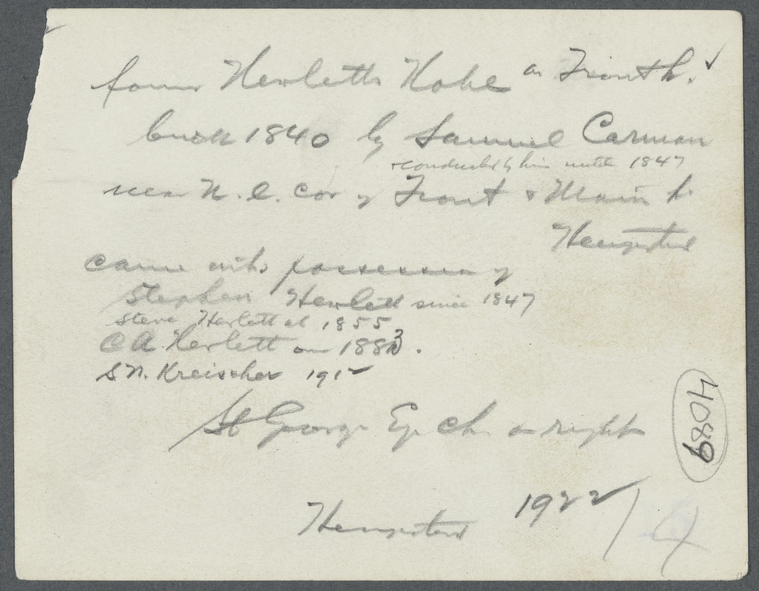 former Hewletts Hotel on Front St.
built 1840 by Samuel Carman
+ conducted by him until 1847
near N. E. cor of Front & Main St
Hempstead
came into possession of
Stephen Hewlett since 1847
Steve Hewlett at 1855
C A. Hewlett on 1883.
S N. Kreischer 1912
St George Ep Ch on right
4089
Hempstead 1922